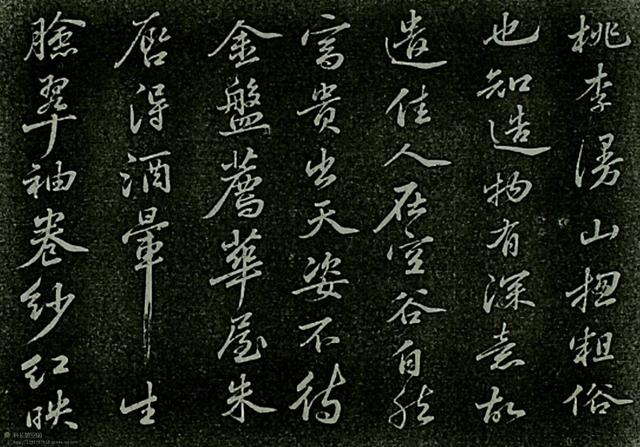 桃李漫山揔粗俗
也知造物有深意故
遣佳人在空谷自然
富贵出天姿不待
金盤薦華屋朱
唇得酒暈生
臉翠袖卷紗紅映